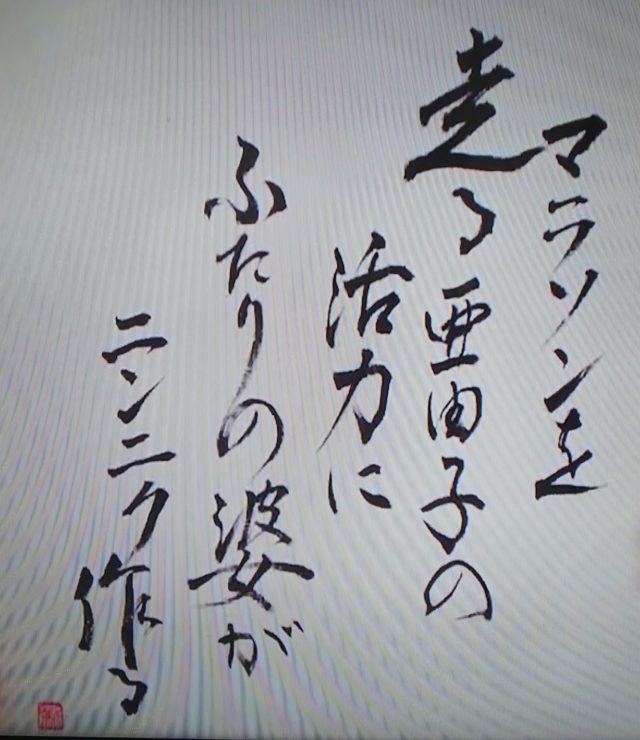 マラソンを
走る亜由子の
活力に
ふたりの婆が
ニンニク作る